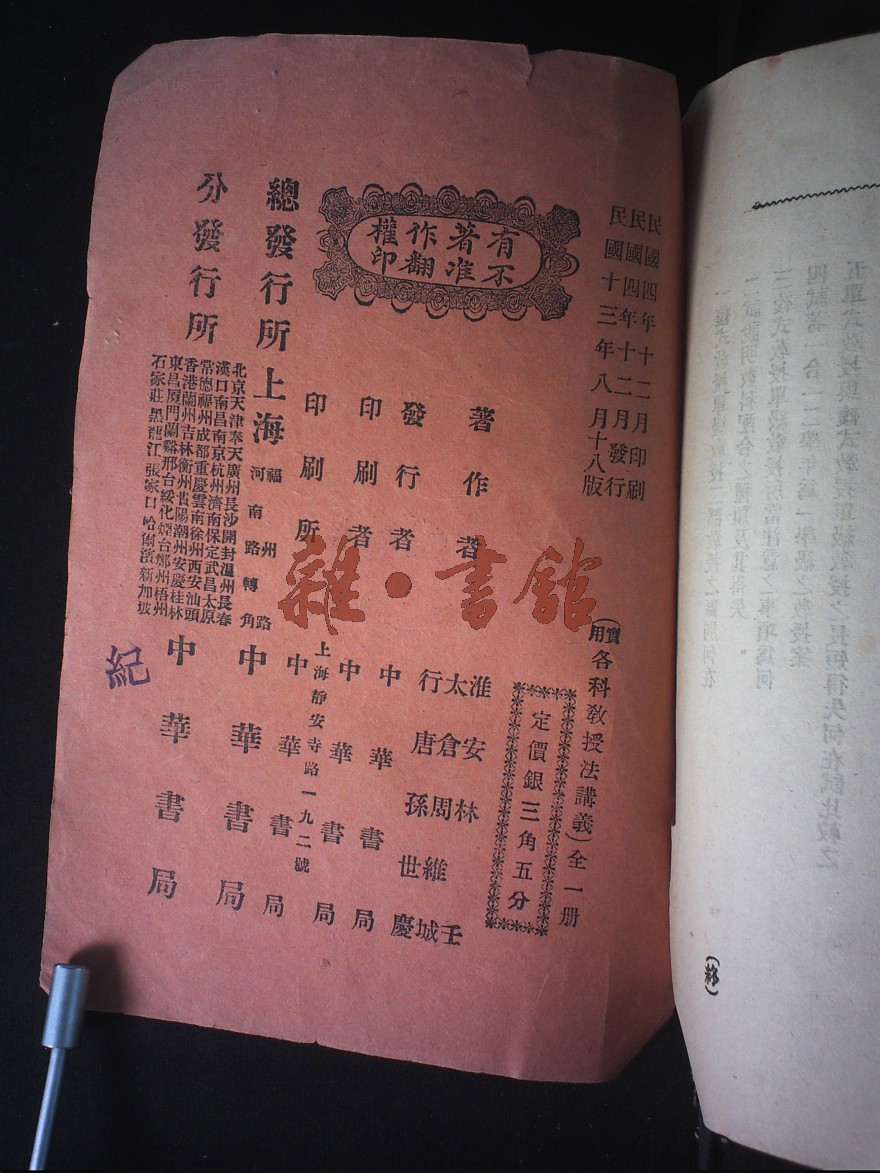 民國四年十二月印刷
民國四年十二月發行
民國十三年八月十八版
有著作權
不准翻印
(實用各科教授法講義)全一册
定價銀三角五分
著作者
淮安林壬
太倉周維城
行唐孫世慶
發行者 中華書局
印刷者 中華書局
印刷所
上海靜安寺路一九二號
中華書局
總發行所
上海
福州路
河南路轉角
中華書局
分發行所
北京天津奉天廣州長沙開封温州長春
漢口南昌南京杭州濟南保定武昌太原
常德福州成都重慶雲南徐州西安汕頭
香港蘭州吉林衡州貴陽潮州安慶桂林
東昌厦門蘭谿邢台綏化煙台鄭州梧州
石家莊黑龍江張家口哈爾濱新加坡
中華書局
紀
雜·書館